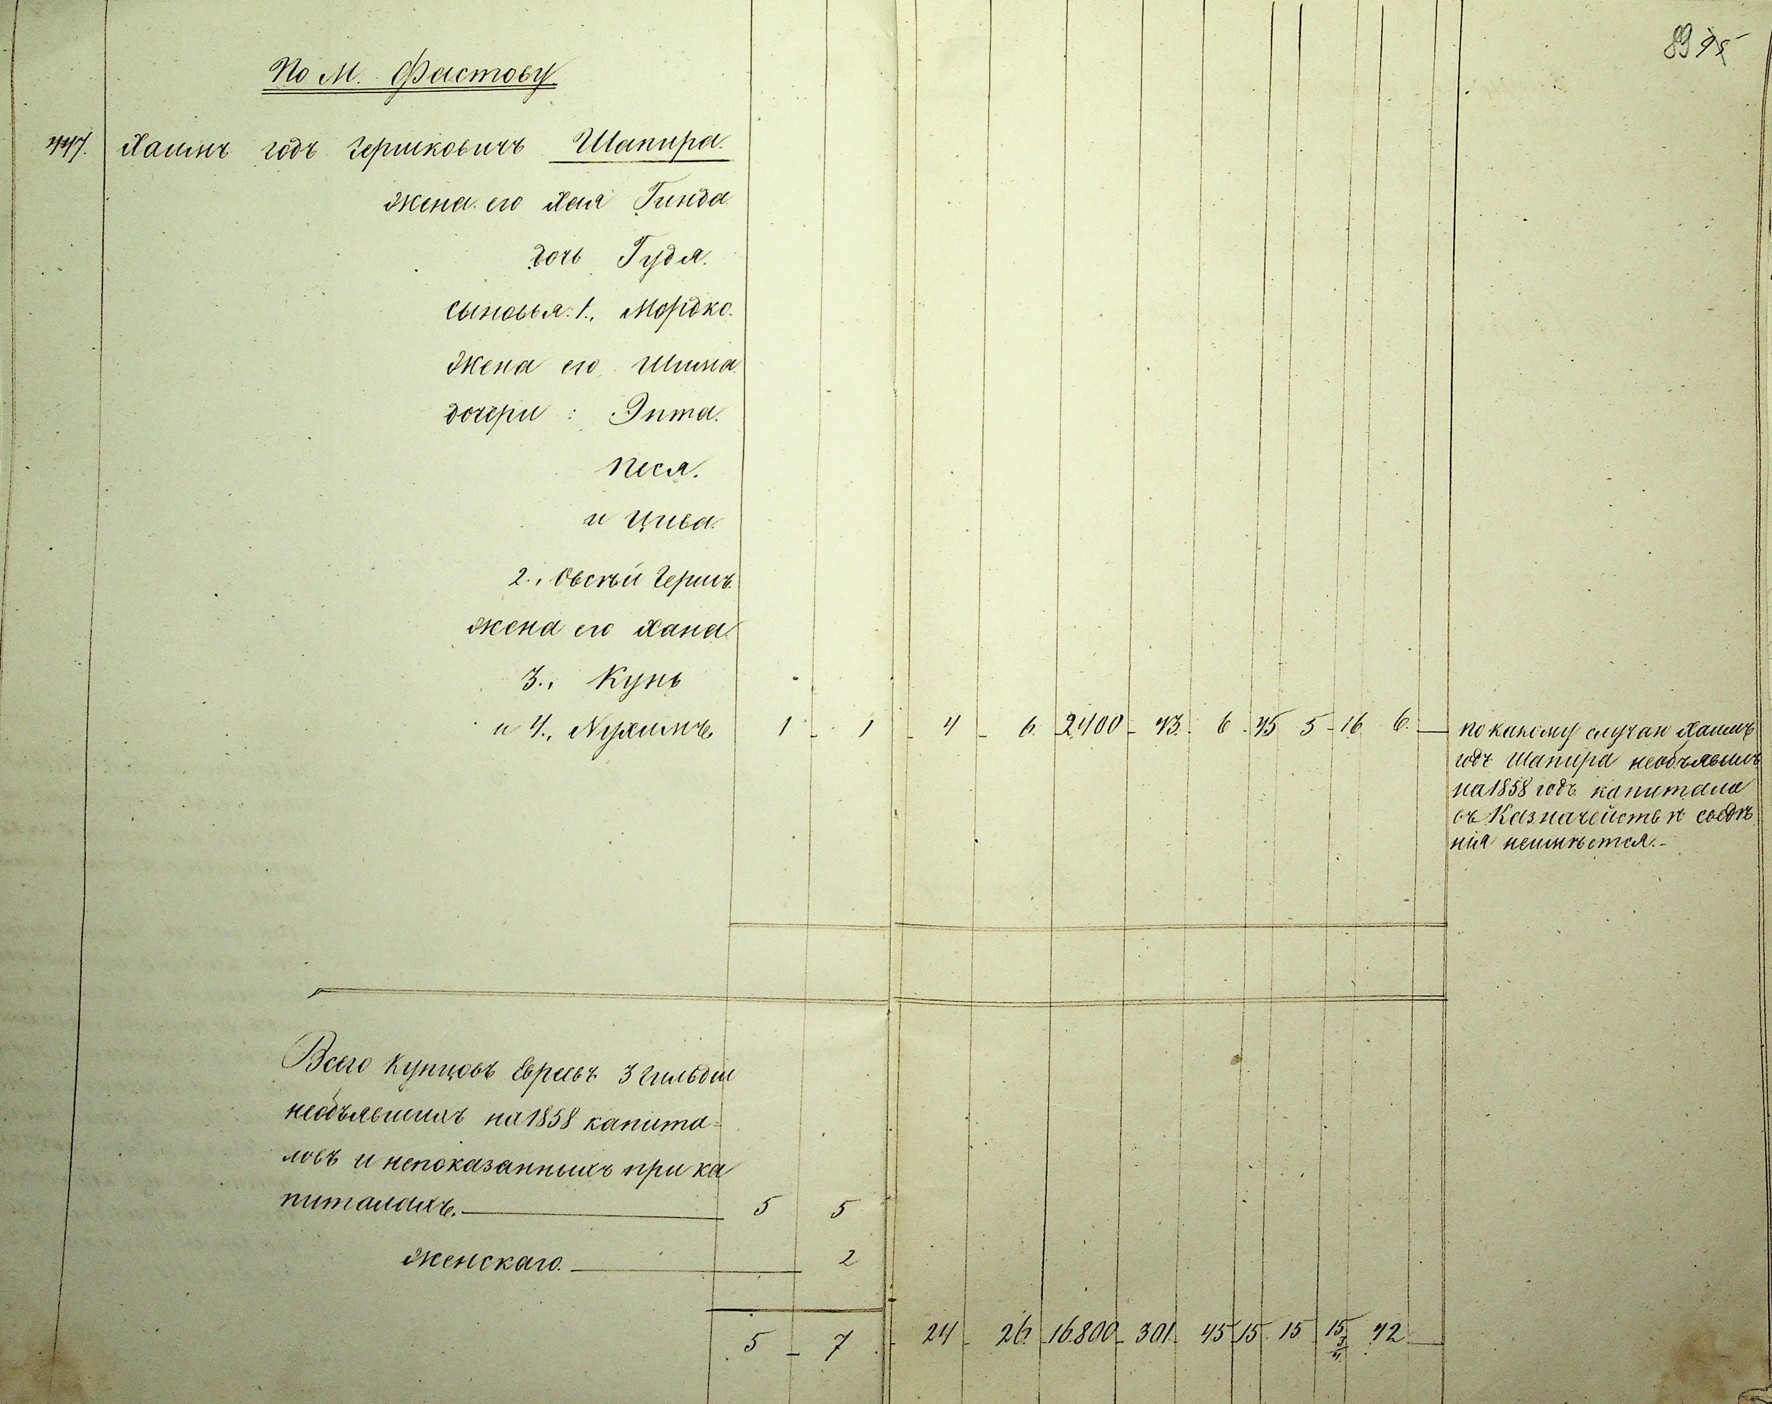 89 95
По М. Фастову
447. Хаимъ годъ Гершковичъ Шапира.
жена его Хая Гинда
дочь Гудя.
сыновья: 1., Мордко.
Жена его Шима
дочери : Энта.
Песя.
и Цива.
2., Овсѣй Гершъ.
жена его Хана.
3., Кунь
и 4., Нухимъ 1 - 1 - 4 - 6. 2400 - 43. 6. 45 5 - 16 6. — по какому случаю Хаимъ
годъ Шапира необъявилъ
на 1858 годъ капитала
въ Казначействѣ сведѣ
нія неимѣется. -
Всего Купцовъ Евреевъ 3 гильдіи
необъявшихъ на 1858 капита=
ловъ и непоказанныхъ при ка
питалахъ. — 5 5
Женскаго. — 2
5 - 7 - 24 - 26. 16.800 - 301. 45 15. 15 15 3/4. 42 —